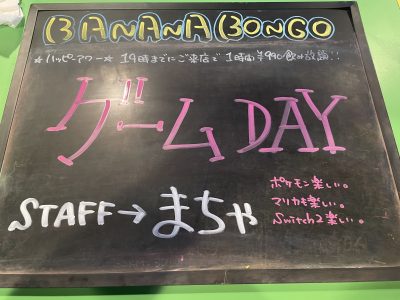 BANANA BONGO
☆ハッピーアワー☆ 19時までにご来店で1時間¥990飲み放題!!
ゲームDAY
ポケモン楽しい。
マリカも楽しい。
Switch2楽しい。
STAFF→まちゃ